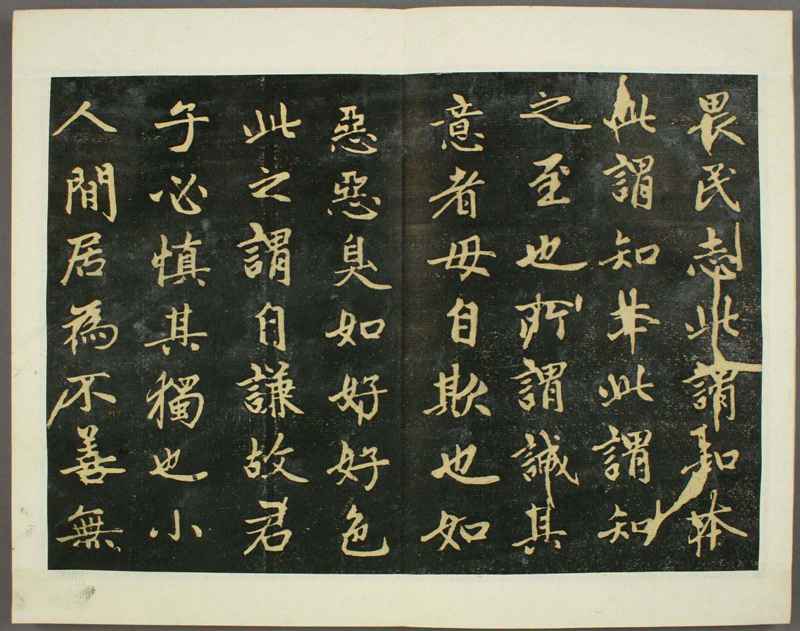 畏民志此謂知本
此謂知本此謂知
之至也所謂誠其
意者毋自欺也如
惡惡臭如好好色
此之謂自謙故君
子必慎其獨也小
人閒居為不善無